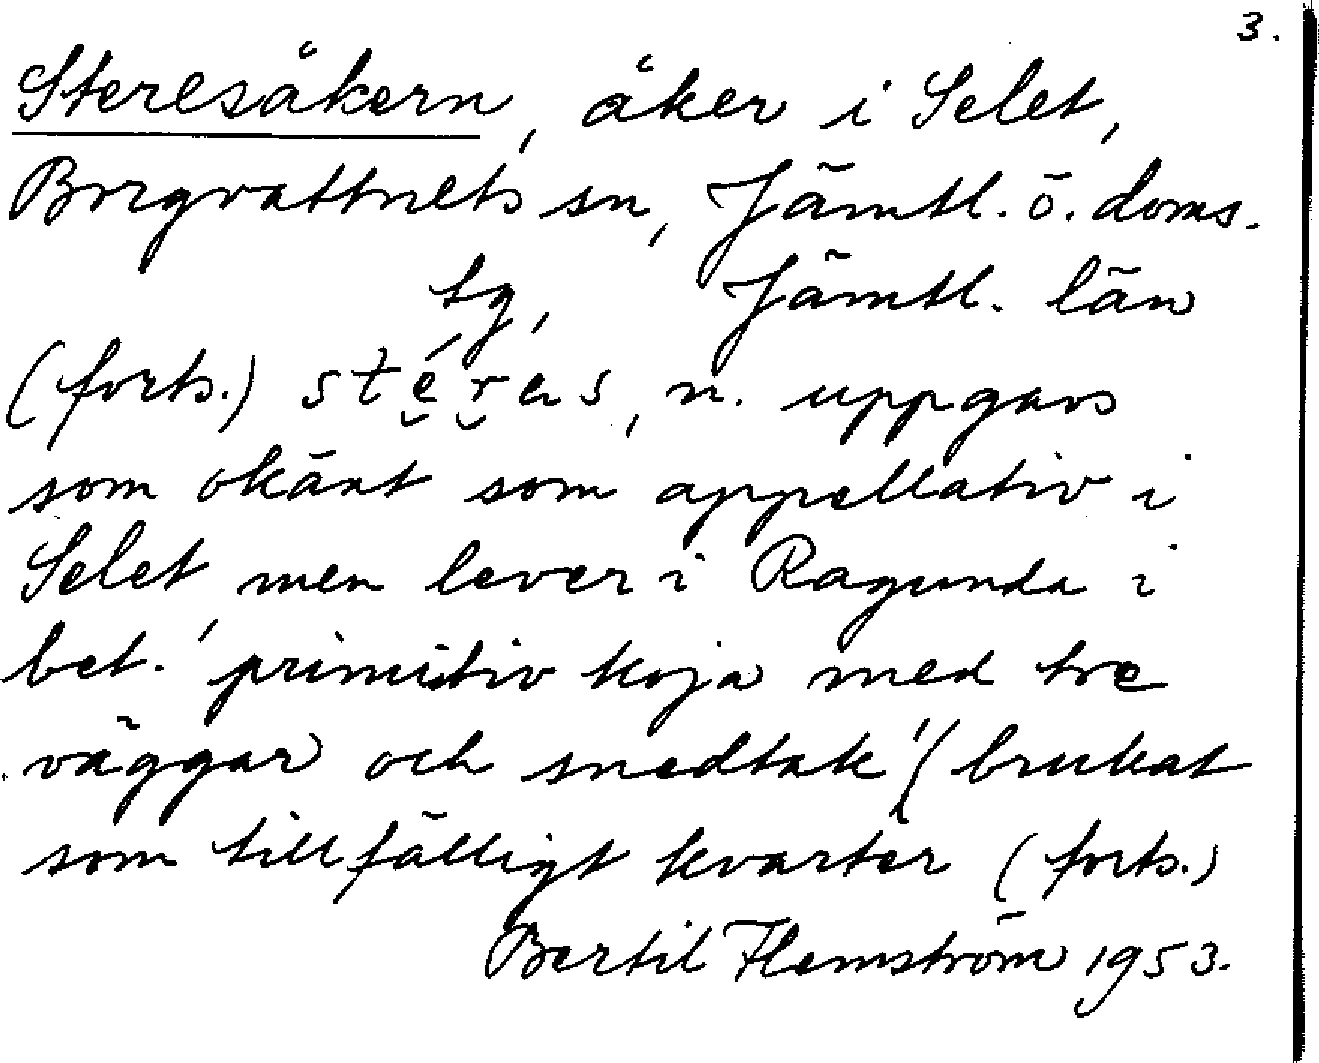 3.
Steresåkern, åker i Selet,
Borgvattnets sn, Jämtl. ö. doms.
sg, Jämtl. län
(forts.) stéras, n. uppgavs
som okänt som appellativ i
Selet, men lever i Ragunda i
bet. 'primitiv koja med tre
väggar och snedtak' (brukat
som tillfälligt kvarter (forts.)
Bertil Flemström 1953.